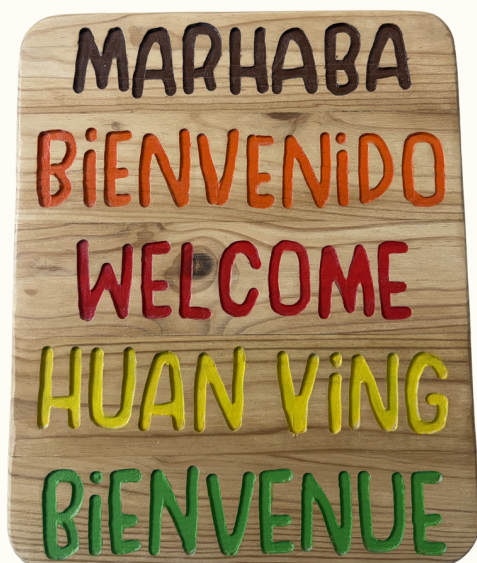 MARHABA
BiENVENiDO
WELCOME
HUAN YiNG
BiENVENUE